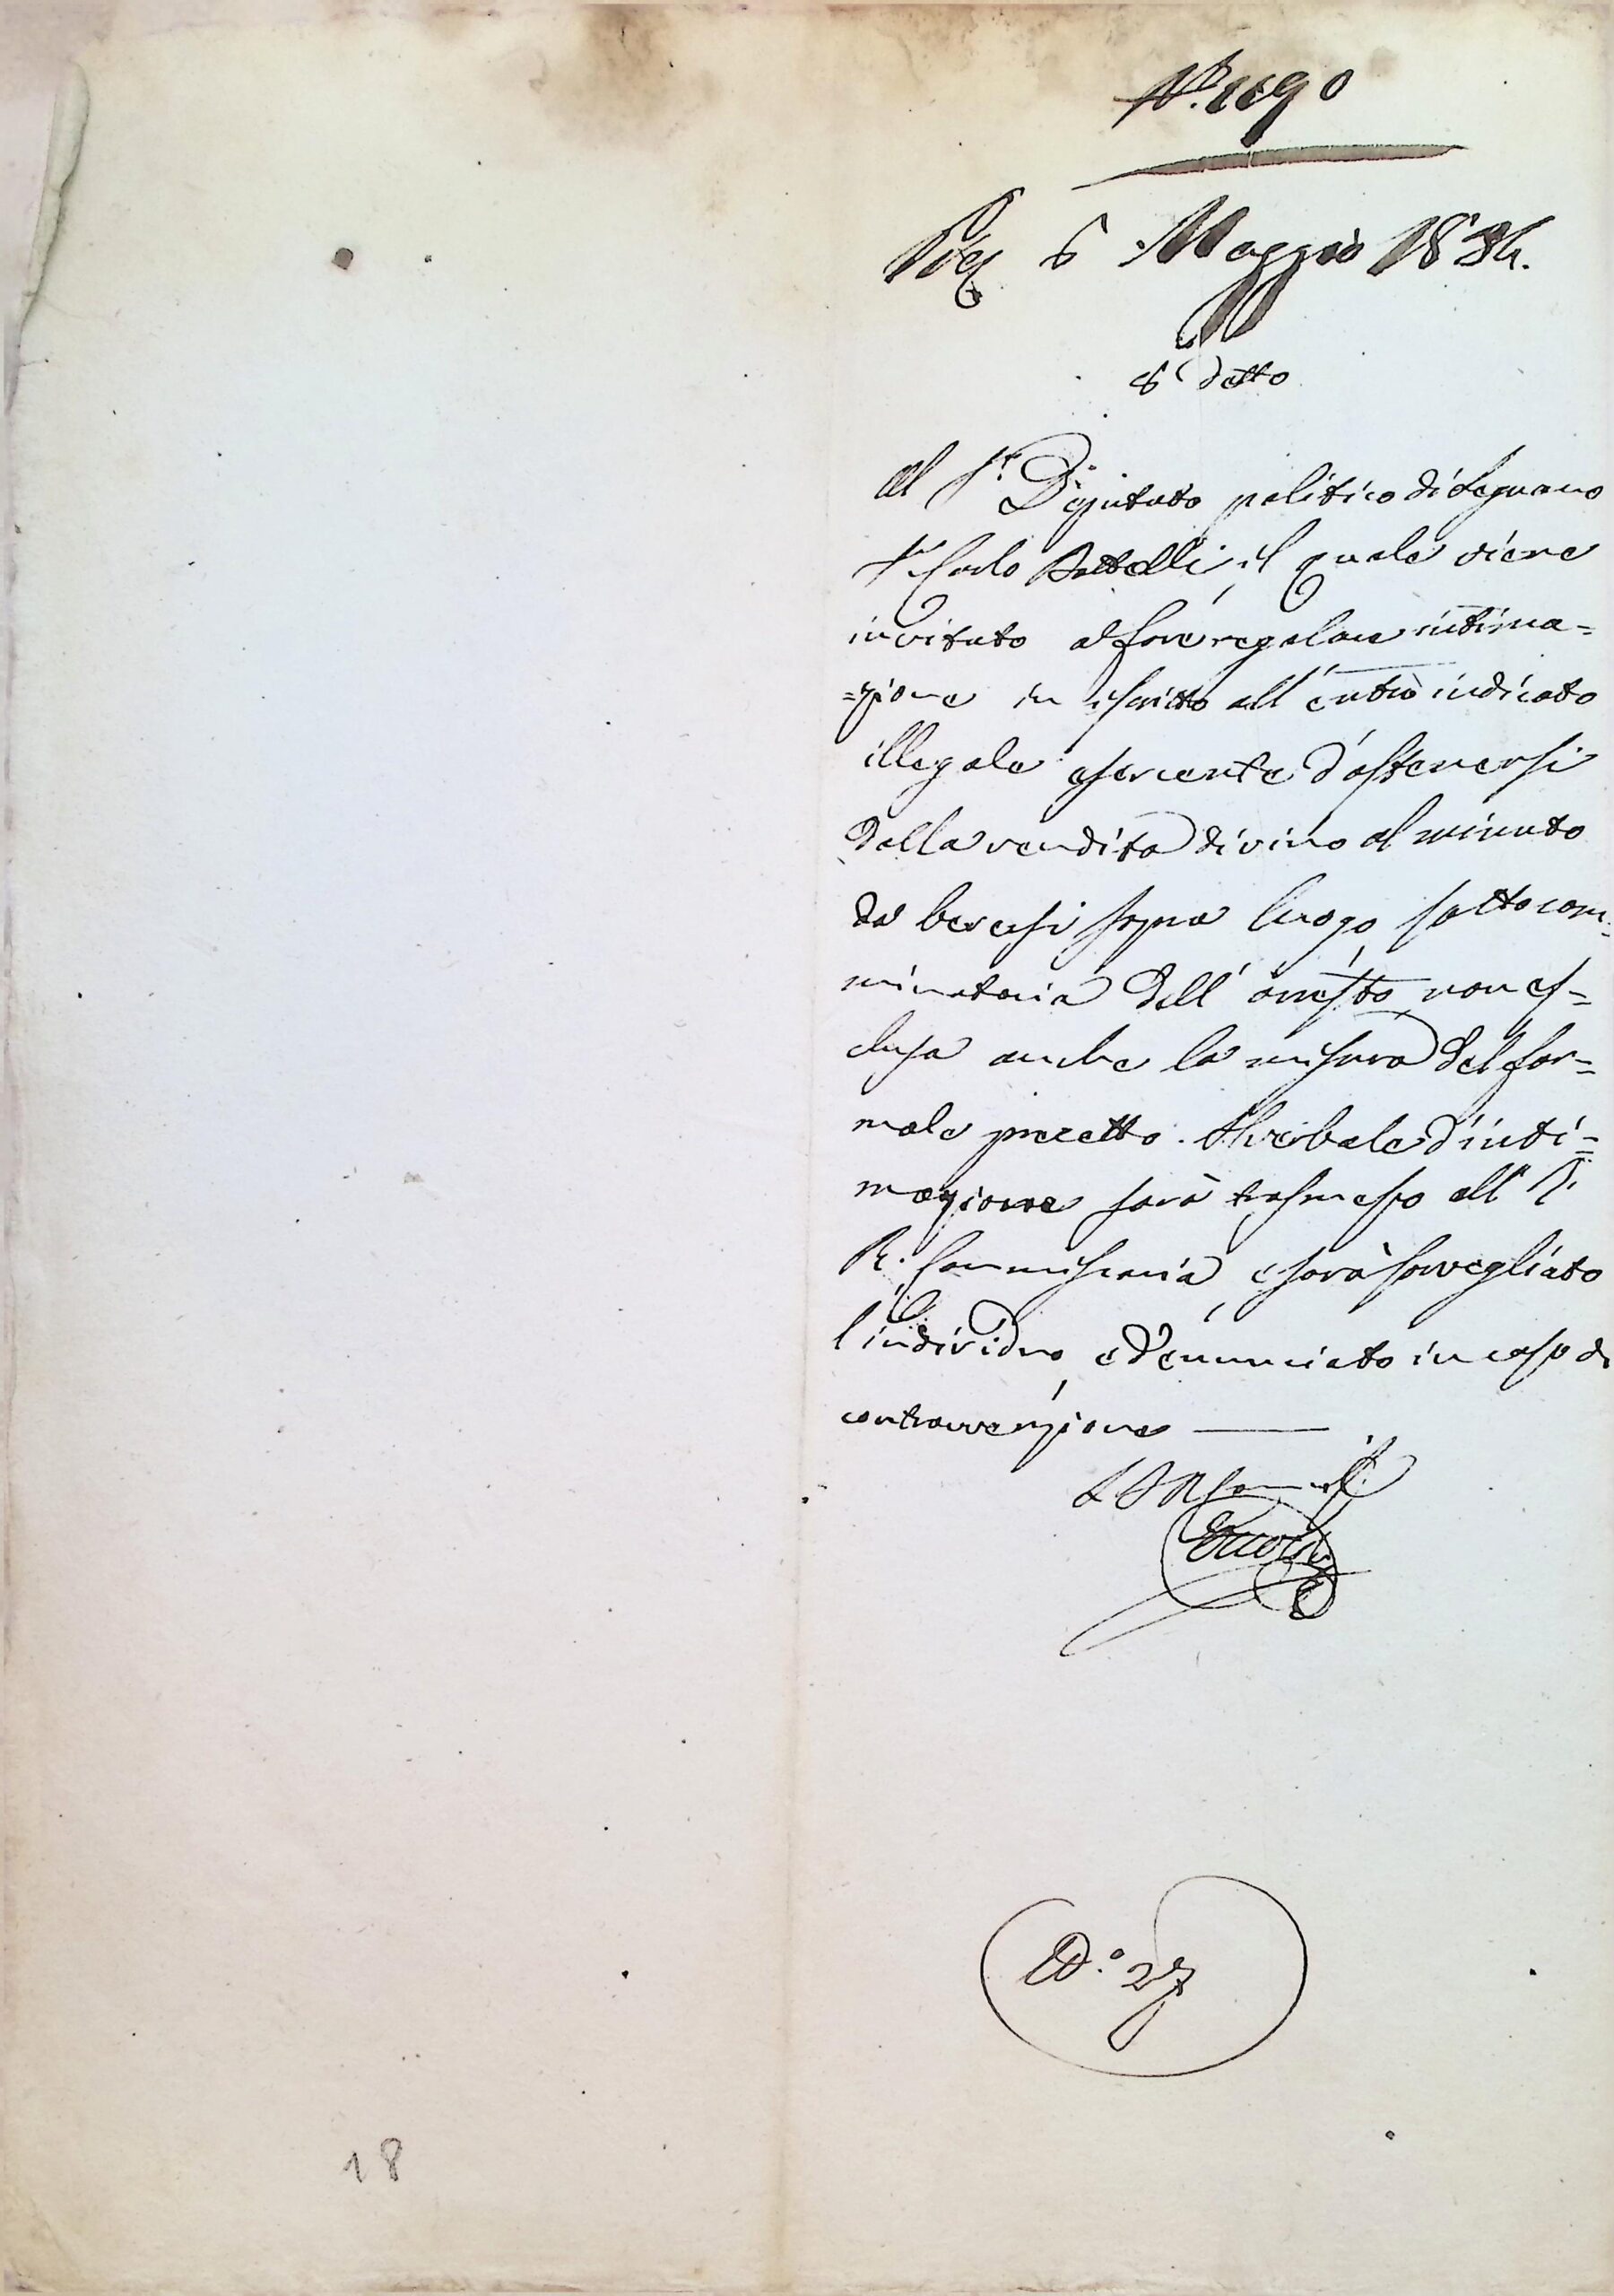 N.° 1190
6 Maggio 1834.
6 detto
Al S.r Deputato politico di Legnano
S.r Carlo Battelli, il quale viene
invitato a fare regolare intima=
=zione in iscritto all'entro indicato
illegale esercente d'astenersi
dalla vendita di vino al minuto
da beversi sopra luogo sotto com=
minatoria dell'arresto, non es=
clusa anche la misura del for=
male precetto. Il verbale d'inti=
mazione sarà trasmesso all'I.
R. Commissaria, e sarà sorvegliato
l'individuo, e denunciato in caso di
contravvenzione
27
18